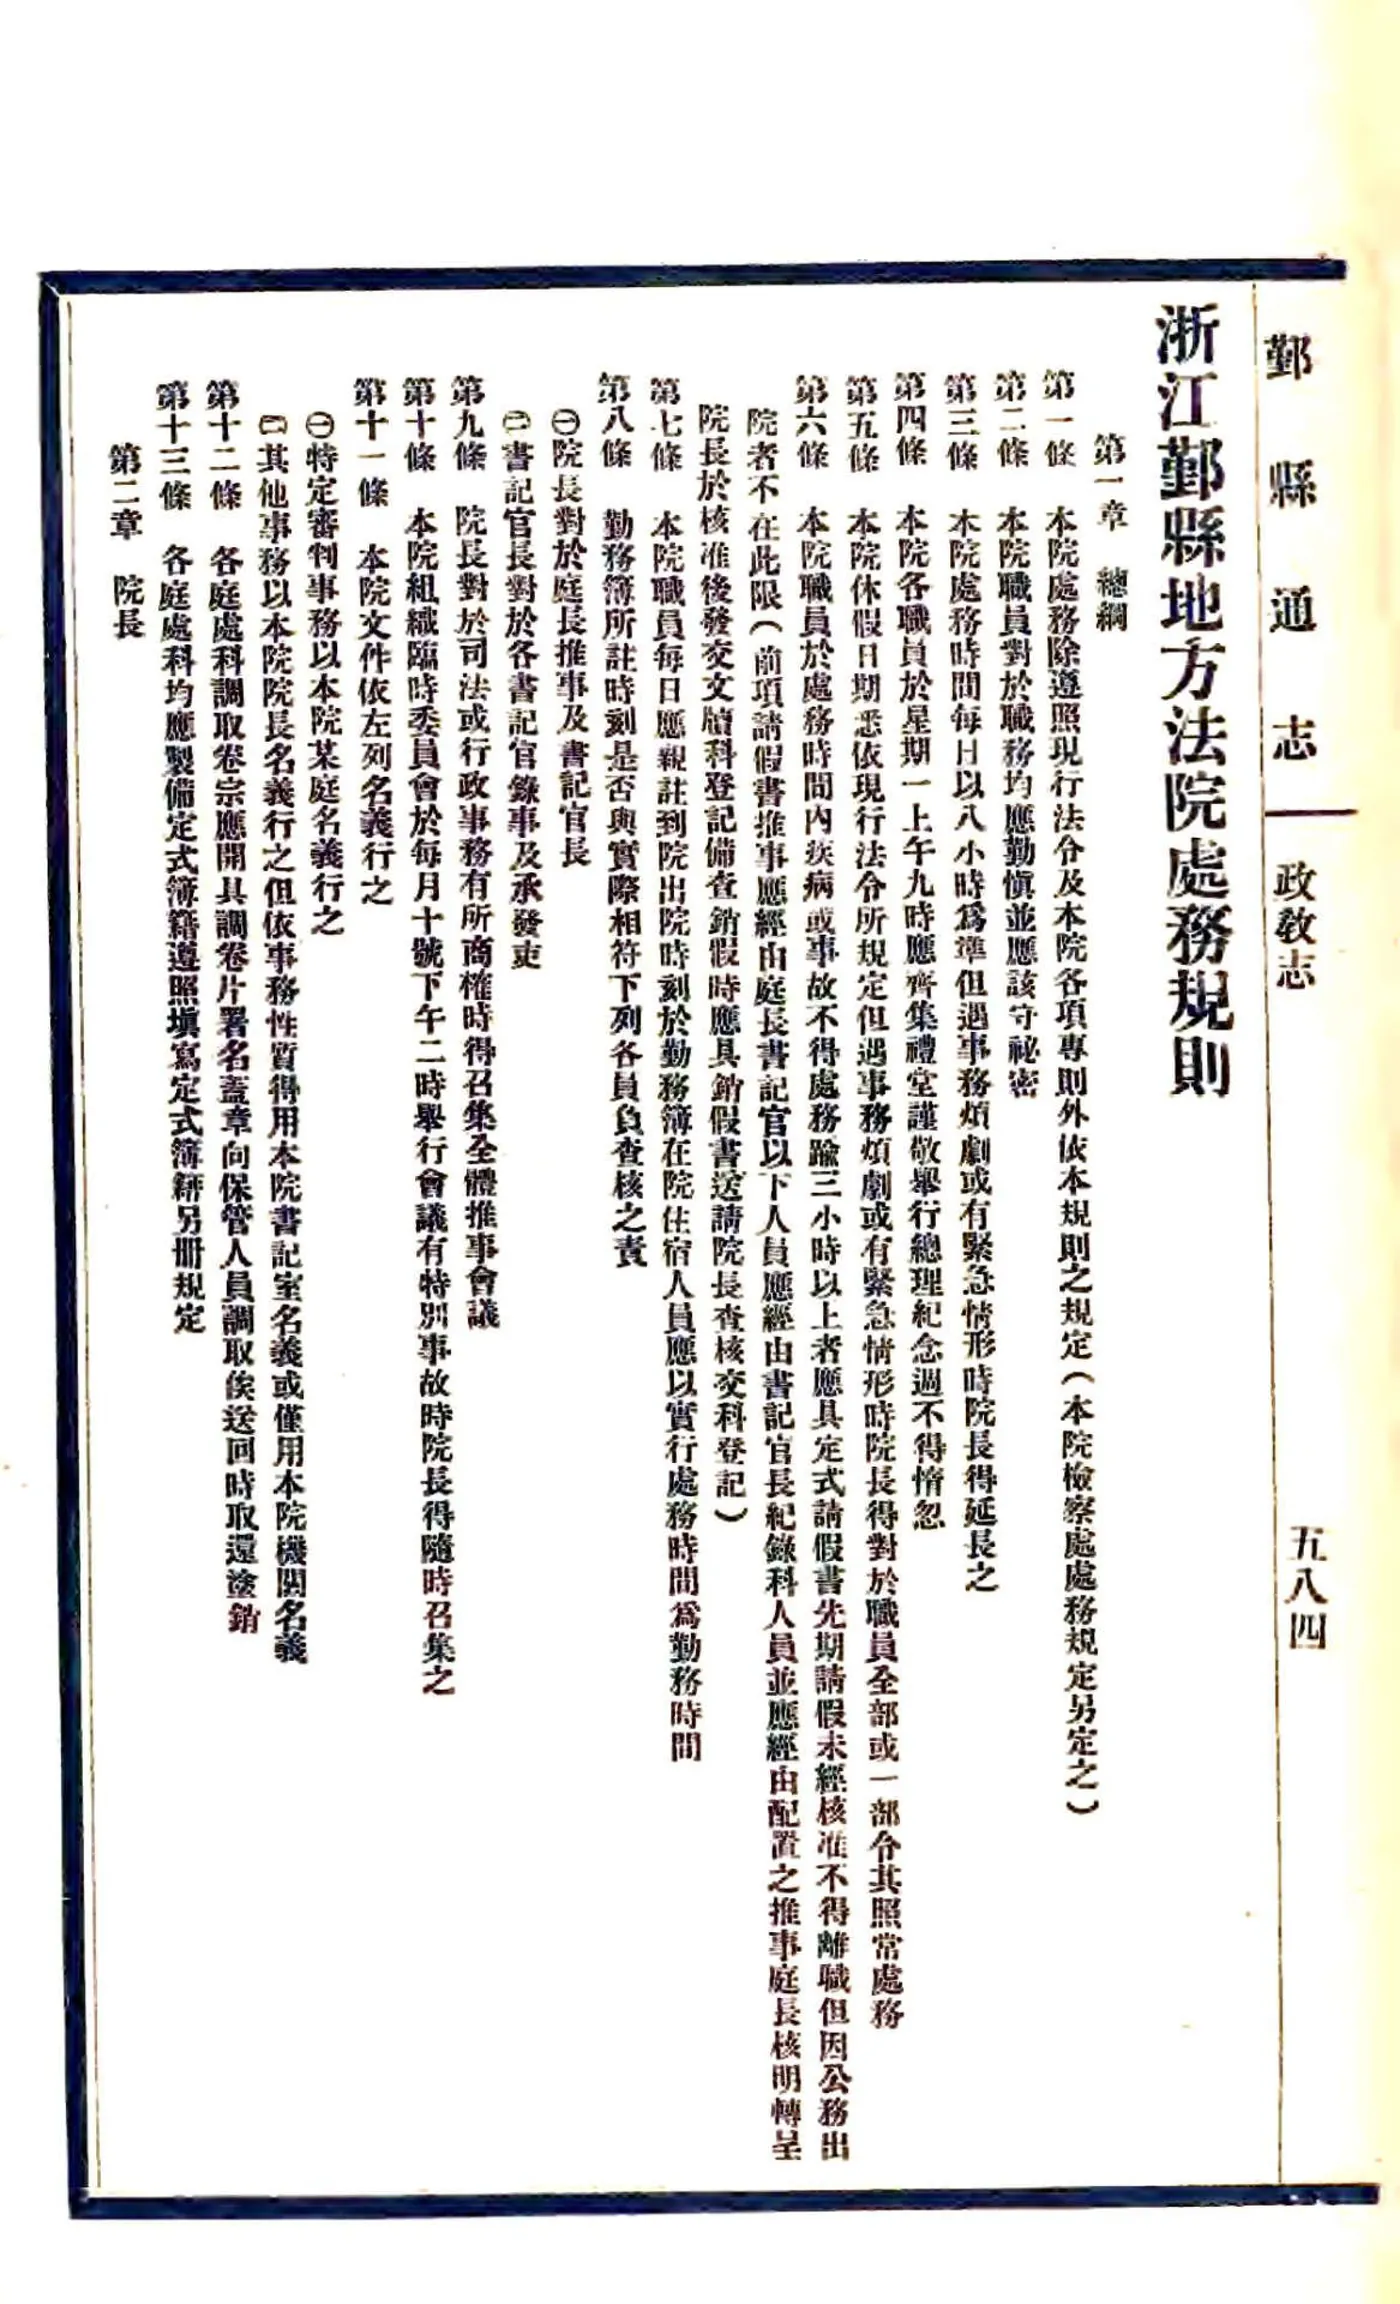 鄞縣通志 政教志 五八四
浙江鄞縣地方法院處務規則
第一章 總綱
第一條 本院處務除遵照現行法令及本院各項專則外依本規則之規定(本院檢察處處務規定另定之)
第二條 本院職員對於職務均應勤慎並應該守祕密
第三條 本院處務時間每日以八小時爲準但遇事務煩劇或有緊急情形時院長得延長之
第四條 本院各職員於星期一上午九時應齊集禮堂謹敬舉行總理紀念週不得惰忽
第五條 本院休假日期悉依現行法令所規定但遇事務煩劇或有緊急情形時院長得對於職員全部或一部令其照常處務
第六條 本院職員於處務時間內疾病或事故不得處務踰三小時以上者應具定式請假書先期請假未經核准不得離職但因公務出
院者不在此限(前項請假書推事應經由庭長書記官以下人員應經由書記官長紀錄科人員並應經由配置之推事庭長核明轉呈
院長於核准後發交文牘科登記備查銷假時應具銷假書送請院長查核交科登記)
第七條 本院職員每日應親註到院出院時刻於勤務簿在院住宿人員應以實行處務時間爲勤務時間
第八條 勤務簿所註時刻是否與實際相符下列各員負查核之責
㊀院長對於庭長推事及書記官長
㊁書記官長對於各書記官錄事及承發吏
第九條 院長對於司法或行政事務有所商榷時得召集全體推事會議
第十條 本院組織臨時委員會於每月十號下午二時舉行會議有特別事故時院長得隨時召集之
第十一條 本院文件依左列名義行之
㊀特定審判事務以本院某庭名義行之
㊁其他事務以本院院長名義行之但依事務性質得用本院書記室名義或僅用本院機關名義
第十二條 各庭處科調取卷宗應開具調卷片署名蓋章向保管人員調取俟送回時取還塗銷
第十三條 各庭處科均應製備定式簿籍遵照塡寫定式簿籍另冊規定
第二章 院長